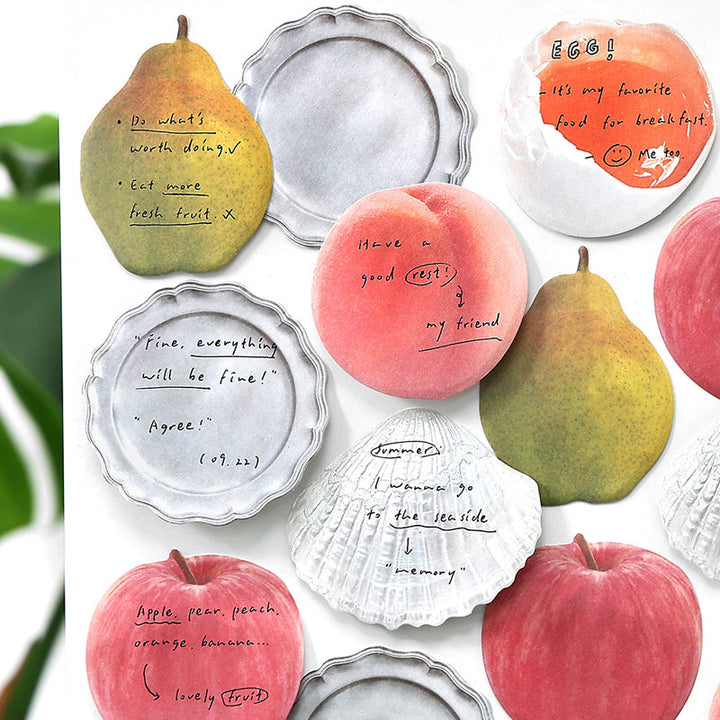 • Do what's
worth doing.✓
• Eat more
fresh fruit. x
EGG!
- It's my favorite
food for breakfast.
- ☺ Me too.
Have a
good rest!
↓
my friend
"Fine, everything
will be fine!"
"Agree!"
(09.22)
Summer.
I wanna go
to the seaside
↓
"memory"
Apple, pear, peach,
orange, banana...
lovely fruit